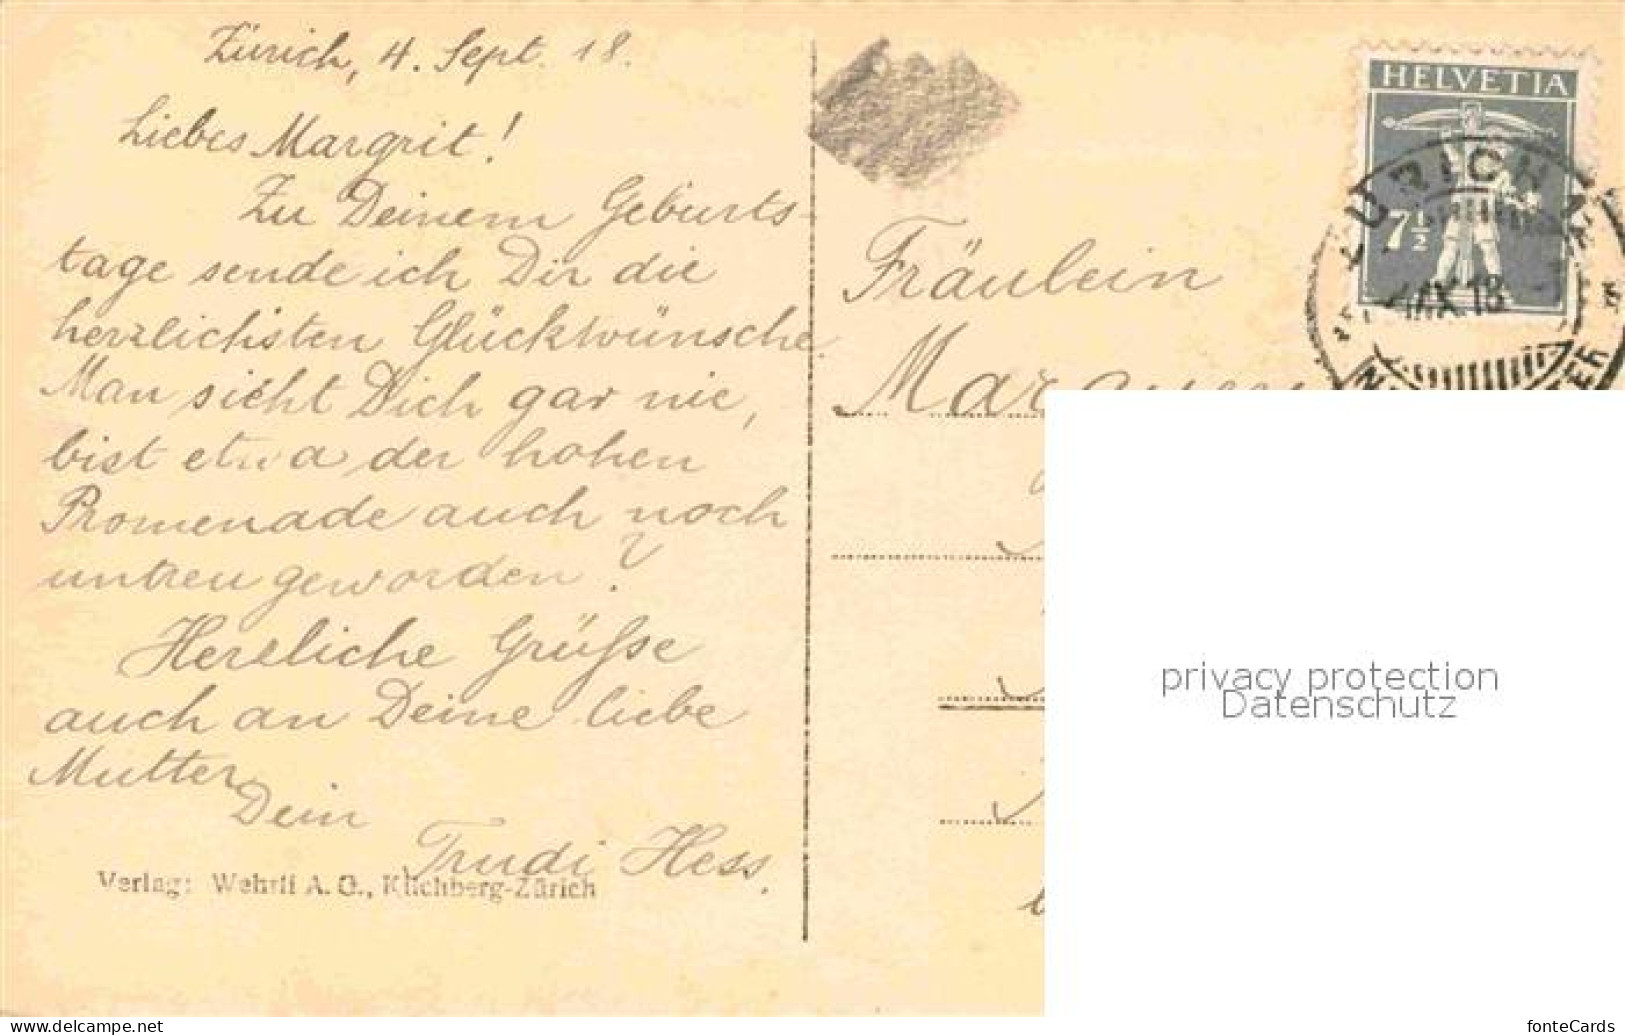 Zürich, 4. Sept. 18.
Liebes Margrit!
Zu Deinem Geburts-
tage sende ich Dir die
herzlichsten Glückwünsche.
Man sieht Dich gar nie,
bist etwa der hohen
Promenade auch noch
untreu geworden?
Herzliche Grüsse
auch an Deine liebe
Mutter
Dein
Trudi Hess.
Verlag: Wehrli A. G., Kilchberg-Zürich
Fräulein
HELVETIA
7½
ZÜRICH
IX.18
privacy protection
Datenschutz
www.delcampe.net
fonteCards